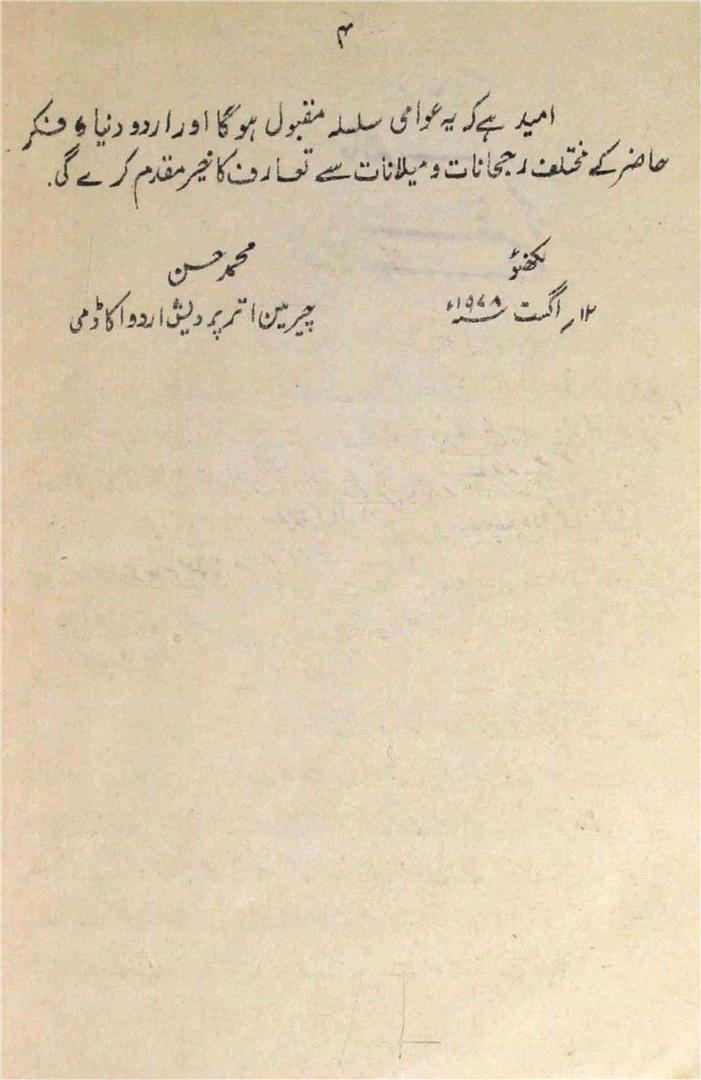 ۴
امید ہے کہ یہ عوامی سلسلہ مقبول ہوگا اور اردو دنیا، فکر
حاضر کے مختلف رجحانات و میلانات سے تعارف کا خیر مقدم کرے گی۔
لکھنؤ
محمد حسن
۱۲؍ اگست ۱۹۷۸ء
چیرمین اتر پردیش اردو اکاڈمی